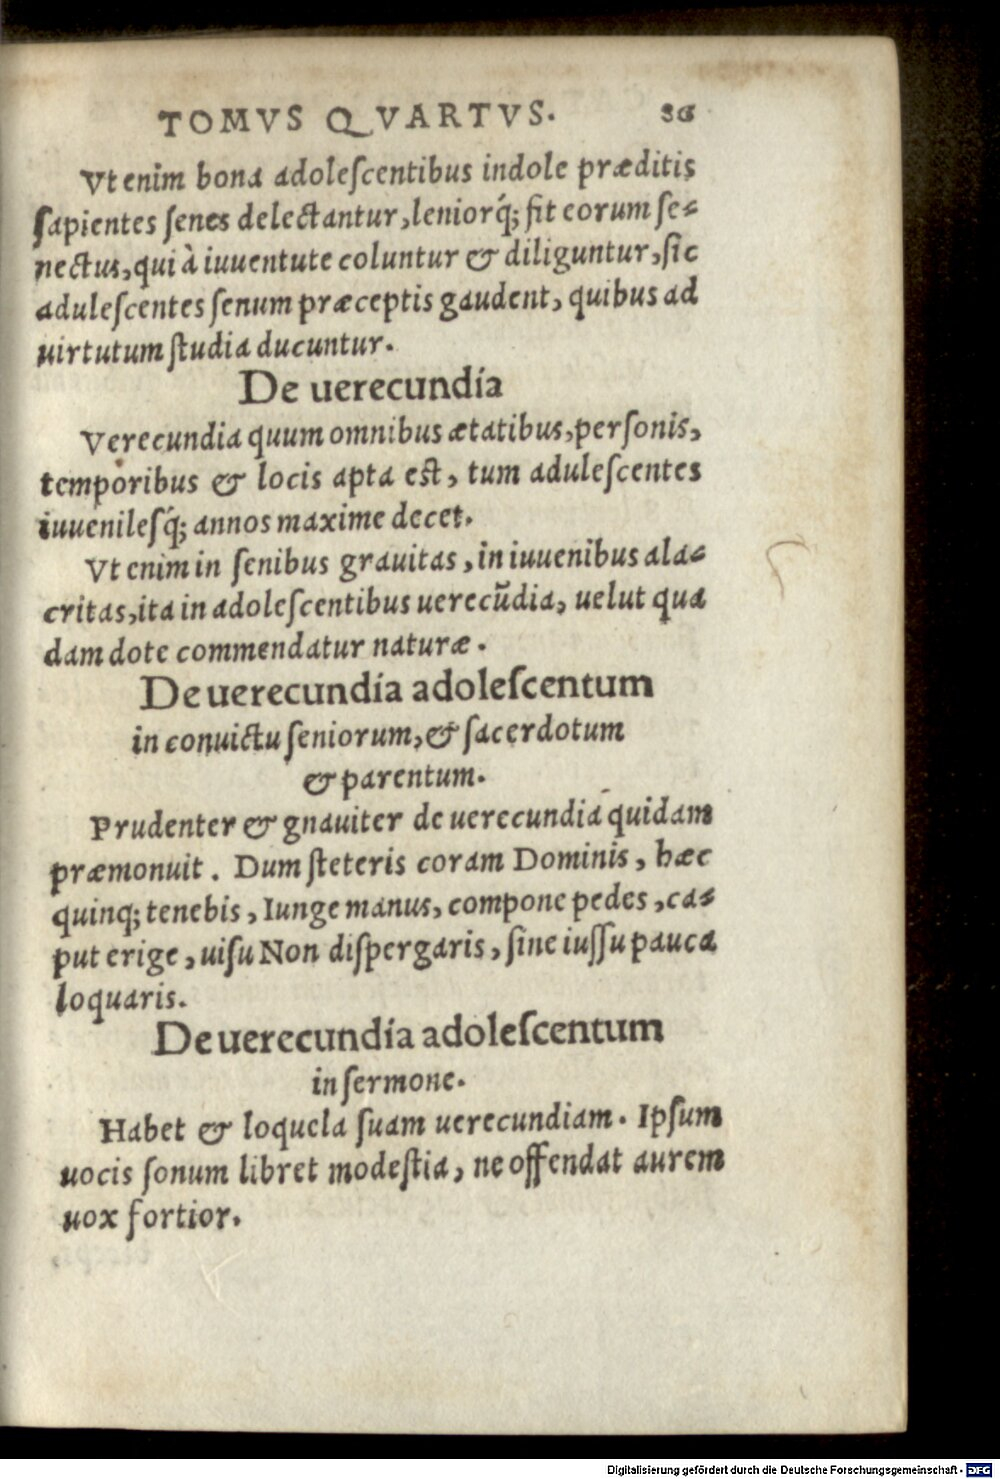 TOMVS QVARTVS. 36
Vt enim bona adoleſcentibus indole præditis
ſapientes ſenes delectantur, leniorq́; fit eorum ſe-
nectus, qui à iuuentute coluntur & diliguntur, ſic
aduleſcentes ſenum præceptis gaudent, quibus ad
uirtutum ſtudia ducuntur.
De uerecundía
Verecundia quum omnibus ætatibus, perſonis,
temporibus & locis apta eſt, tum aduleſcentes
iuuenileſq́; annos maxime decet.
Vt enim in ſenibus grauitas, in iuuenibus ala-
critas, ita in adoleſcentibus uerecũdia, uelut qua
dam dote commendatur naturæ.
De uerecundía adoleſcentum
in conuictu ſeniorum, & ſacerdotum
& parentum.
Prudenter & gnauiter de uerecundia quidam
præmonuit. Dum ſteteris coram Dominis, hæc
quinq; tenebis, Iunge manus, compone pedes, ca-
put erige, uiſu Non diſpergaris, ſine iuſſu pauca
loquaris.
De uerecundía adoleſcentum
in ſermone.
Habet & loquela ſuam uerecundiam. Ipſum
uocis ſonum libret modeſtia, ne offendat aurem
uox fortior.
Digitalisierung gefördert durch die Deutsche Forschungsgemeinschaft - DFG